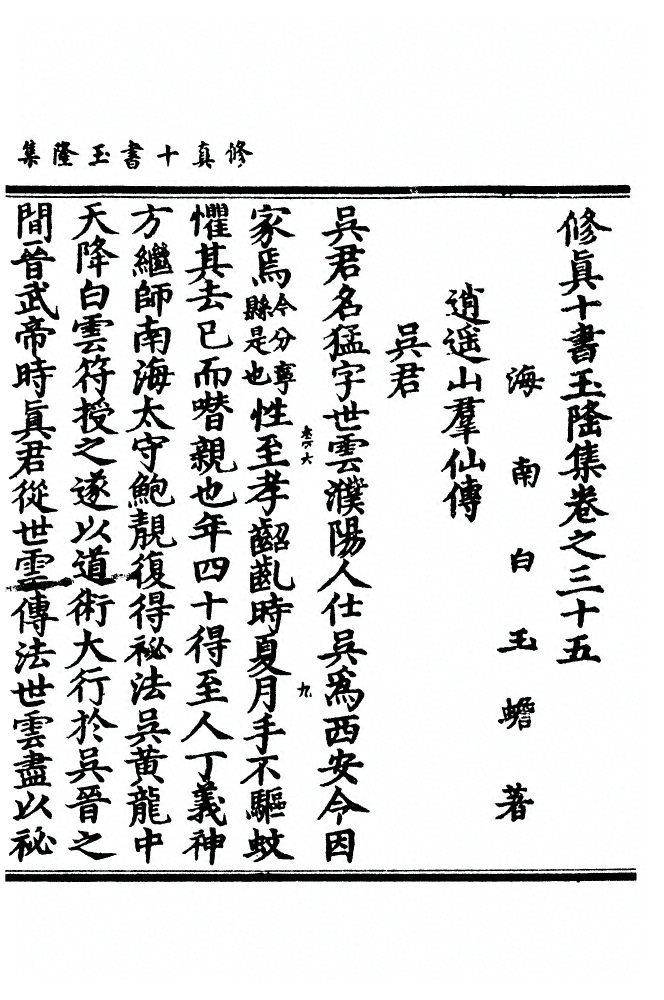 修真十書玉隆集
修眞十書玉隆集卷之三十五
海南白玉蟾著
逍遥山羣仙傳
吳君
吳君名猛字世雲濮陽人仕吳爲西安令因
家焉今分寧縣是也性至孝齠齓時夏月手不驅蚊
懼其去已而噆親也年四十得至人丁義神
方繼師南海太守鮑靚復得祕法吳黄龍中
天降白雲符授之遂以道術大行於吳晉之
間晉武帝時眞君從世雲傳法世雲盡以祕